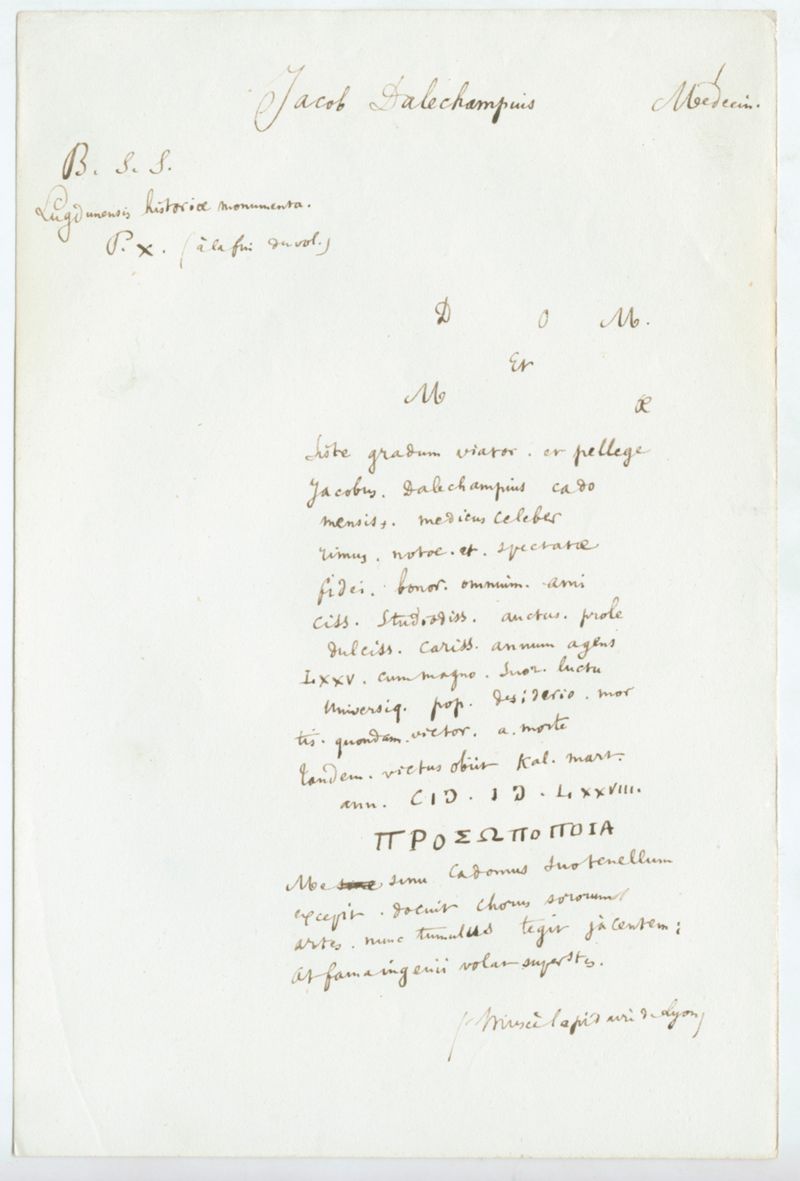 Jacob Dalechampius Médecin.
B. S. S.
Lugdunensis historiæ monumenta.
P. X. (à la fin du vol.)
D O M.
Et
M Æ
Siste gradum viator. et pellege
Jacobus. Dalechampius cado
mensis. medicus celeber
rimus. notæ. et. spectatæ
fidei. bonor. omnium. ami
ciss. Studiodiss. auctus. prole
dulciss. cariss. annum agens
LXXV. cum magno. Suor. luctu
Universiq. pop. desiderio. mor
tis. quondam. victor. a. morte
tandem. victus obiit Kal. mart.
ann. CIƆ. IƆ. LXXVIII.
ΠΡΟΣΩΠΟΠΟΙΑ
Me sinu Cadomus suo tenellum
excepit. docuit chorus sororum
artes. nunc tumulus tegit jàcentem;
At fama ingenii volat superstes.
(Musée lapidaire de Lyon)